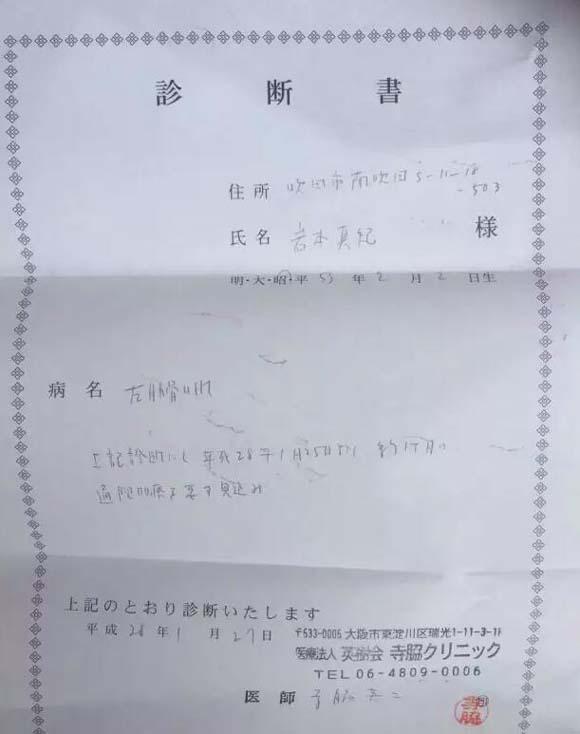 診断書
住所 吹田市南吹田5-11-18
-503
氏名 岩本真紀 様
明・大・昭・平 53 年 2 月 2 日生
病名 左肋骨
上記診断にて 平成28年1月25日より 約1ケ月の
通院加療を要す見込み
上記のとおり診断いたします
平成 28 年 1 月 27 日
〒533-0005 大阪市東淀川区瑞光1-11-3-1F
医療法人 英樹会 寺脇クリニック
TEL 06-4809-0006
医師 寺脇
寺脇